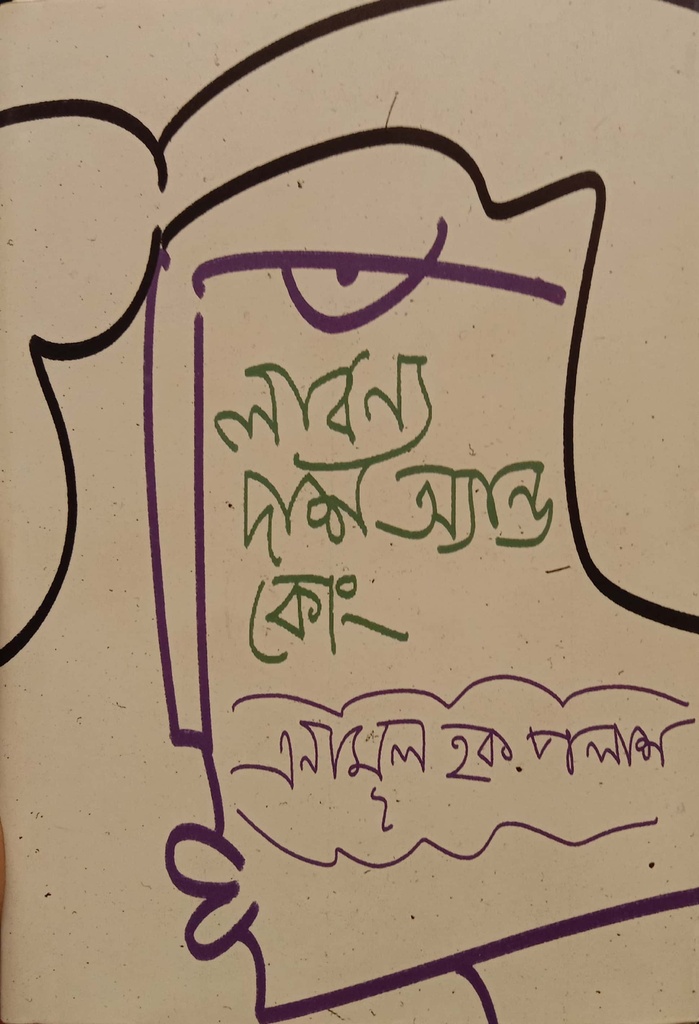 লাবন্য
দাশ অ্যান্ড
কোং
এনামূল হক পলাশ